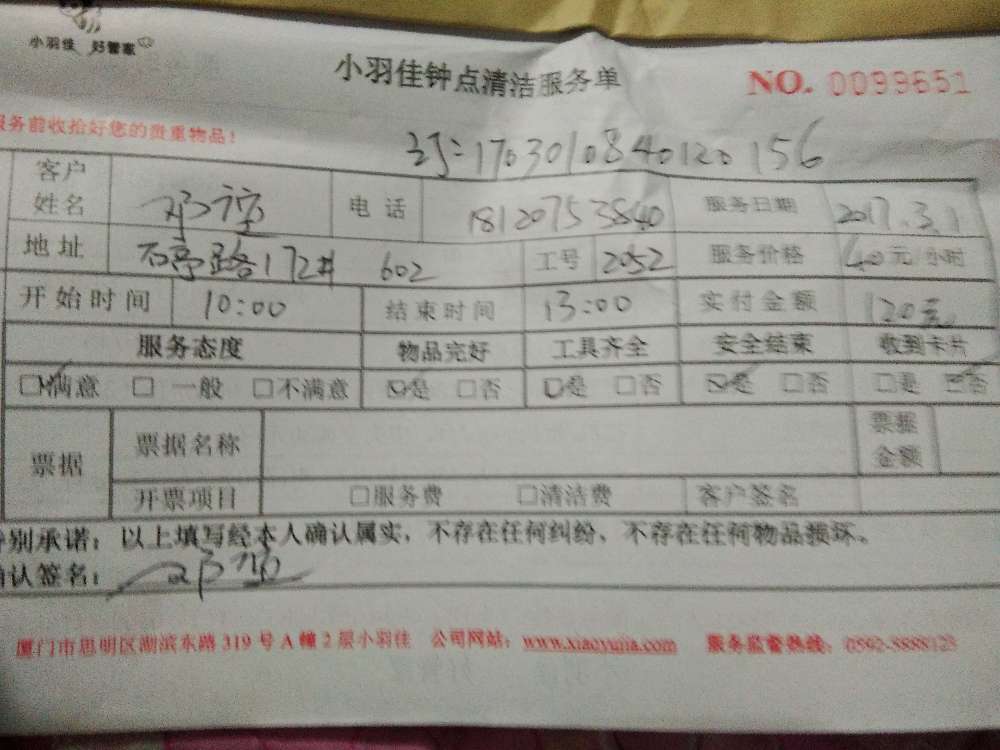 小羽佳 好管家
小羽佳钟点清洁服务单 NO. 0099651
服务前收拾好您的贵重物品!
170301084020156
客户姓名 邓 电话 18120753840 服务日期 2017.3.1
地址 石亭路172# 602 工号 2052 服务价格 40元/小时
开始时间 10:00 结束时间 13:00 实付金额 120元
服务态度 物品完好 工具齐全 安全结束 收到卡片
□满意 □一般 □不满意 □是 □否 □是 □否 □是 □否 □是 □否
票据 票据名称 票据金额
开票项目 □服务费 □清洁费 客户签名
特别承诺:以上填写经本人确认属实,不存在任何纠纷、不存在任何物品损坏。
确认签名: 邓
厦门市思明区湖滨东路319号A幢2层小羽佳 公司网站:www.xiaoyujia.com 服务监督热线:0592-8888123